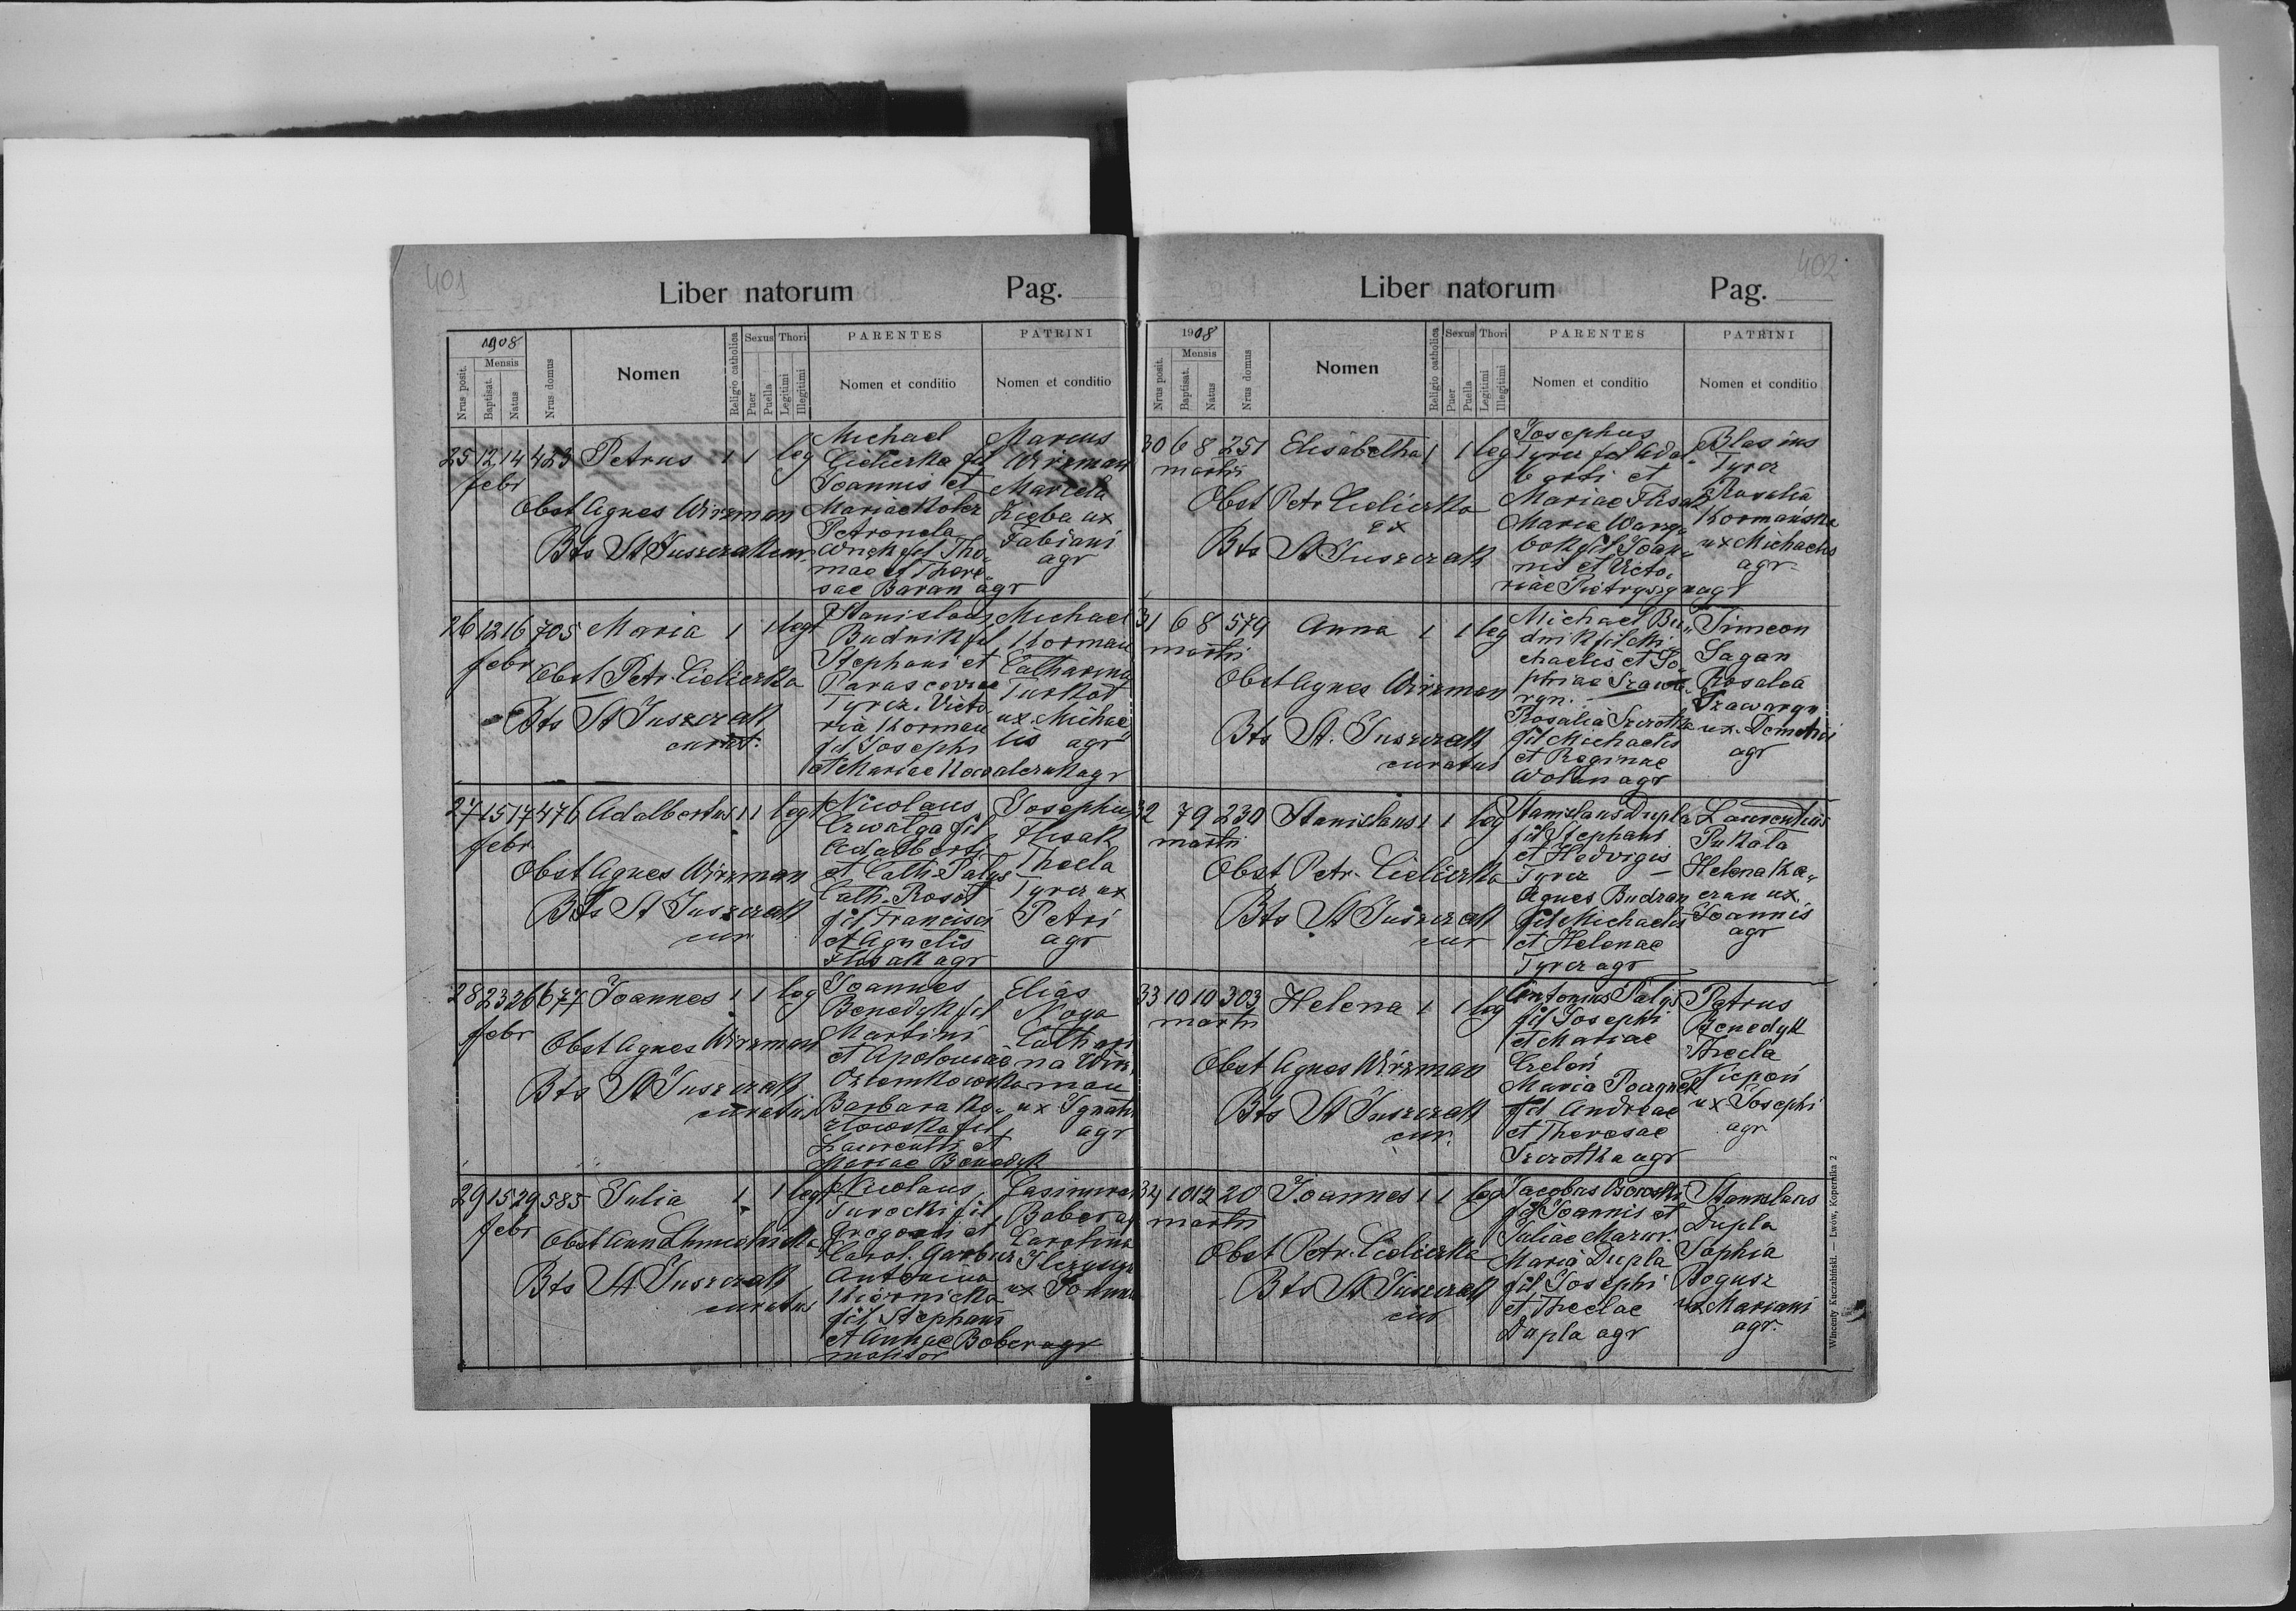 401
Liber natorum Pag.
1908
Nrus posit.
Mensis
Baptisat.
Natus
Nrus domus
Nomen
Religio catholica
Sexus
Puer
Puella
Thori
Legitimi
Illegitimi
PARENTES
Nomen et conditio
PATRINI
Nomen et conditio
25 12 14 423 Petrus 1 1 leg
febr
Obst Agnes Wirzman
Bts St Juszczak
Michael
Cieliczka fil
Joannis et
Mariae Kolcz
Petronela
fil Tho„
mae et There„
sae Baran agr
Marcus
Wirzman
Marcela
Zieba ux
Fabiani
agr
26 12 16 705 Maria 1 1 leg
febr
Obst Petr. Cieliczka
Bts St Juszczak
curat.
Stanislaus
Budnik fil
Stephani et
Parascevae
Tyrcz. Victo
ria Korman
fil Josephi
et Mariae Kowalczuk agr
Michael
Korman
Catharina
Turkot
ux. Michae„
lis agr
27 15 17 476 Adalbertus 1 1 leg
febr
Obst Agnes Wirzman
Bts St Juszczak
cur
Nicolaus
Czwalga fil
Adalberti
et Cath. Palys
Cath. Rosół
fil Francisci
et Agnetis
Flisak agr
Josephus
Flisak
Thecla
Tyrcz ux
Petri
agr
28 23 26 677 Joannes 1 1 leg
febr
Obst Agnes Wirzman
Bts St Juszczak
curatus
Joannes
Benedyk fil
Martini
et Apoloniae
Barbara Ko„
złowska fil
Laurentii et
Mariae Benedyk
Elias
Noga
Cathari
na Wirz
man
ux Ignatii
agr
29 15 29 585 Julia 1 1 leg
febr
Obst Ann Chmielnicka
Bts St Juszczak
curatus
Nicolaus
Turocki fil
Gregorii et
Carol. Garbicz
Antonina
fil Stephani
et Annae Bober agr
molitor
Casimirus
Bober
Carolina
ux Joannis
402
Liber natorum Pag.
1908
Nrus posit.
Mensis
Baptisat.
Natus
Nrus domus
Nomen
Religio catholica
Sexus
Puer
Puella
Thori
Legitimi
Illegitimi
PARENTES
Nomen et conditio
PATRINI
Nomen et conditio
30 6 8 251 Elisabetha 1 1 leg
martii
Obst Petr Cieliczka
Bts St. Juszczak
Josephus
Tyrcz fil Adal„
berti et
Mariae Flisak
Maria Warzy„
bok fil Joan„
nis et Victo„
riae Pietryszyn agr
Blasius
Tyrcz
Rosalia
Kormańska
ux Michaelis
agr
31 6 8 579 Anna 1 1 leg
martii
Obst Agnes Wirzman
Bts St. Juszczak
curatus
Michael Bu„
dnik fil Mi„
chaelis et So„
phiae Szawa„
ryn.
Rosalia Szczotka
fil Michaelis
et Reginae
Wolan agr
Simeon
Sagan
Rosalia
Szawaryn
ux. Demetrii
agr
32 7 9 230 Stanislaus 1 1 leg
martii
Obst Petr. Cieliczka
Bts St Juszczak
cur
Stanislaus Dupla
fil Stephani
et Hedvigis
Tyrcz
Agnes Budzan
fil Michaelis
et Helenae
Tyrcz agr
Laurentius
Pukała
Helena Ka„
czan ux.
Joannis
agr
33 10 10 303 Helena 1 1 leg
martii
Obst Agnes Wirzman
Bts St Juszczak
cur.
Antonius Palys
fil Josephi
et Mariae
Czeleń
Maria
fil Andreae
et Theresae
Szczotka agr
Petrus
Benedyk
Thecla
Niepoń
ux Josephi
agr
34 10 12 20 Joannes 1 1 leg
martii
Obst Petr. Cieliczka
Bts St Juszczak
cur
Jacobus
fil Joannis et
Juliae Mazur.
Maria Dupla
fil Josephi
et Theclae
Dupla agr
Stanislaus
Dupla
Sophia
Bogusz
ux Mariani
agr.
Wincenty Kuczabiński. — Lwów, Kopernika 2